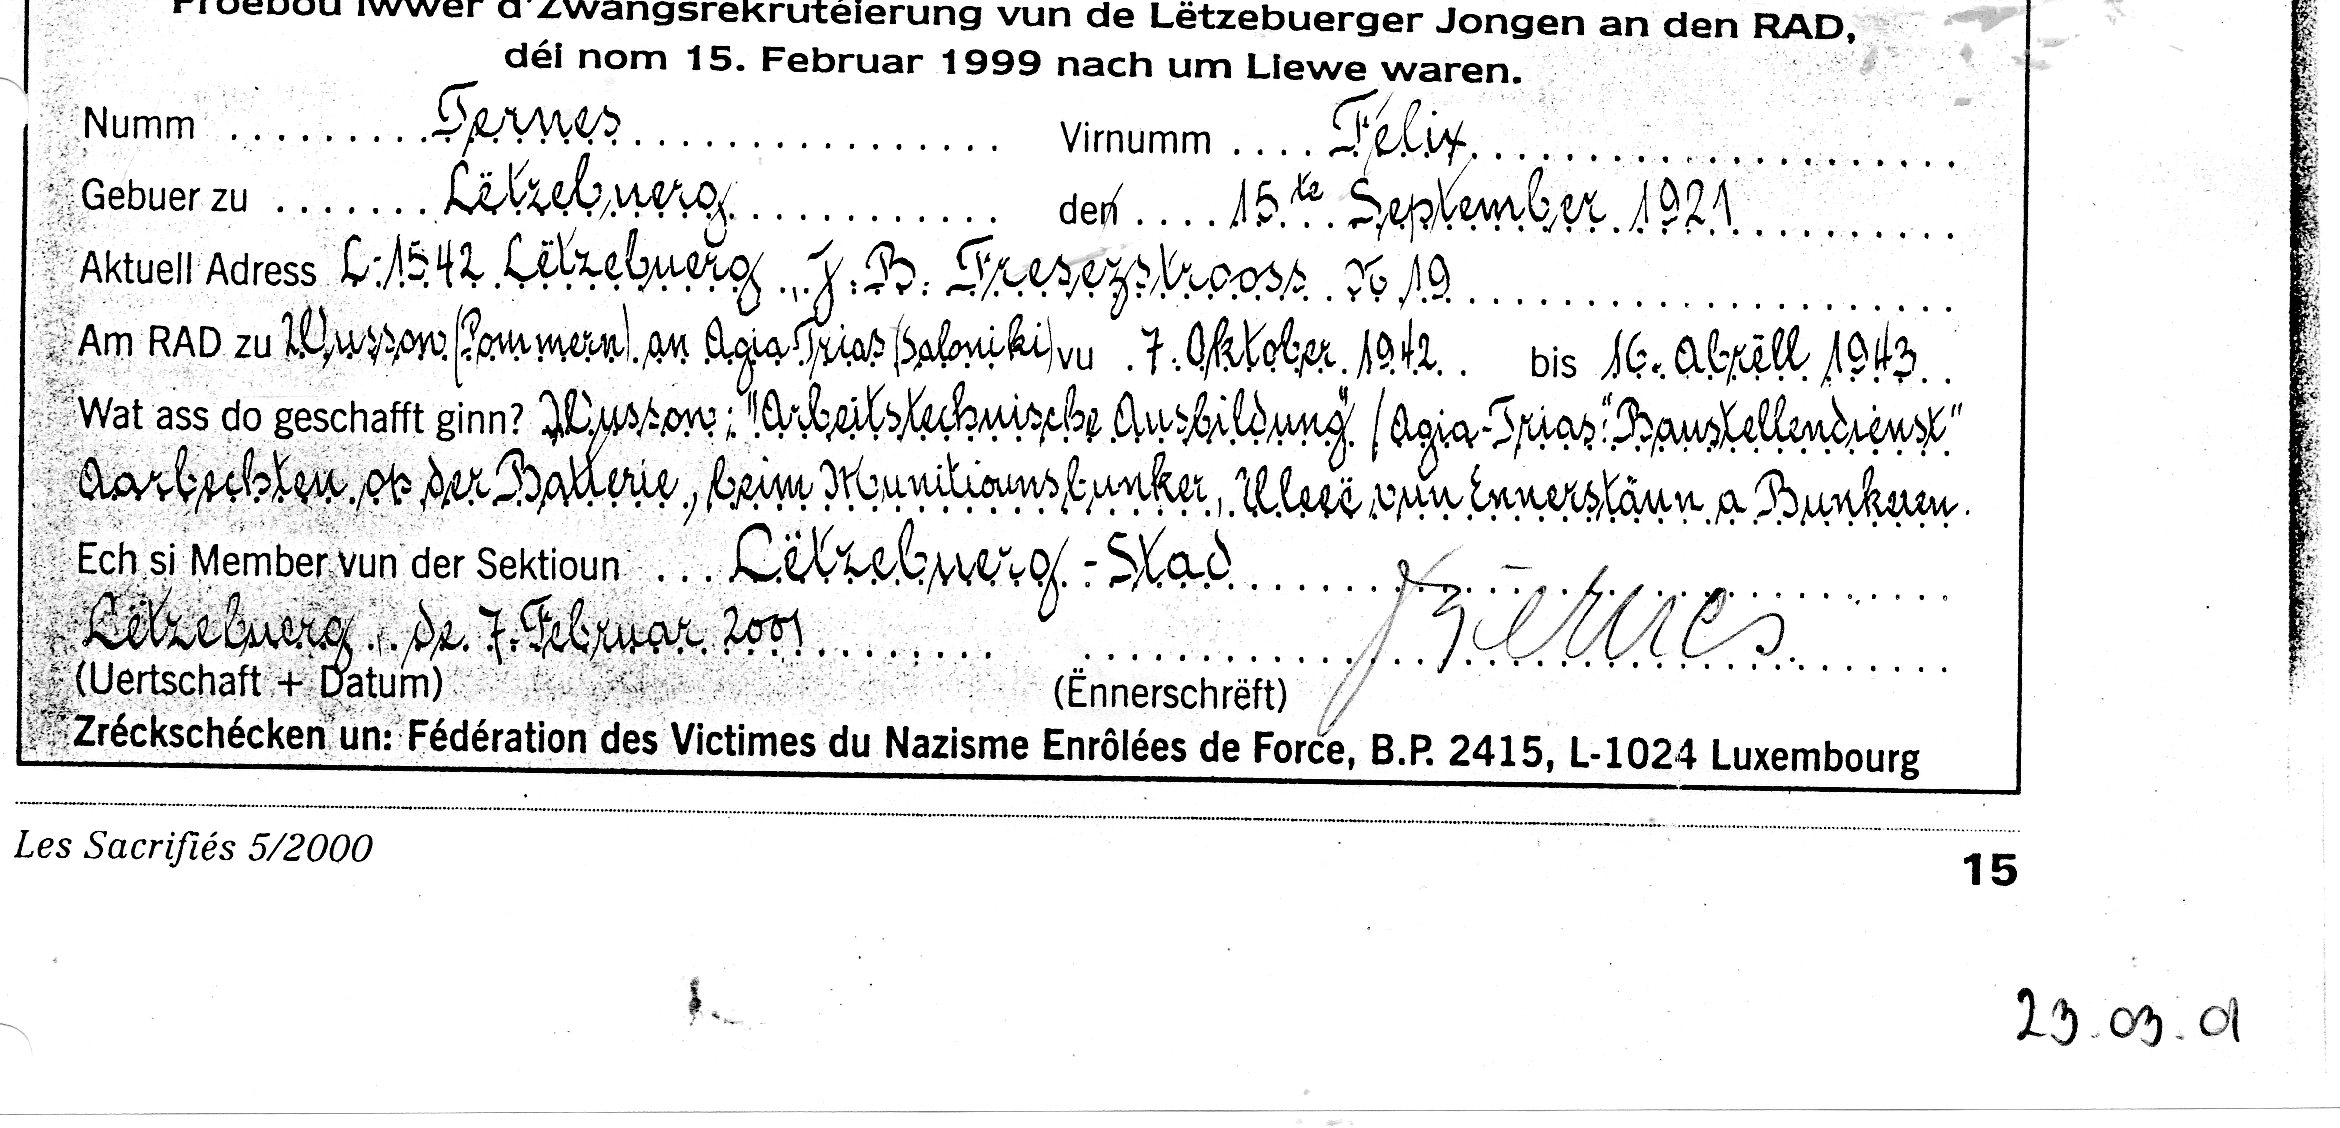 Froebou iwwer d'Zwangsrekrutéierung vun de Lëtzebuerger Jongen an den RAD,
déi nom 15. Februar 1999 nach um Liewe waren.
Numm ......... Ternes ................ Virnumm .... Felix ....................
Gebuer zu ....... Lëtzebuerg ............ den .... 15.te September 1921 ..........
Aktuell Adress L-1542 Lëtzebuerg, J.B. Fresezstrooss No 19
Am RAD zu Wusson (Pommern) an Agia-Trias (Saloniki) vu 7. Oktober 1942 bis 16. Abrëll 1943
Wat ass do geschafft ginn? Wusson: "Arbeitstechnische Ausbildung" / Agia-Trias: "Baustellendienst"
Aarbechten op der Batterie, beim Munitiounsbunker, Uleeë vun Ennerstänn a Bunkeren.
Ech si Member vun der Sektioun ... Lëtzebuerg-Stad
Lëtzebuerg, de 7. Februar 2001 Ternes
(Uertschaft + Datum) (Ënnerschrëft)
Zréckschécken un: Fédération des Victimes du Nazisme Enrôlées de Force, B.P. 2415, L-1024 Luxembourg
Les Sacrifiés 5/2000 15
23.03.01